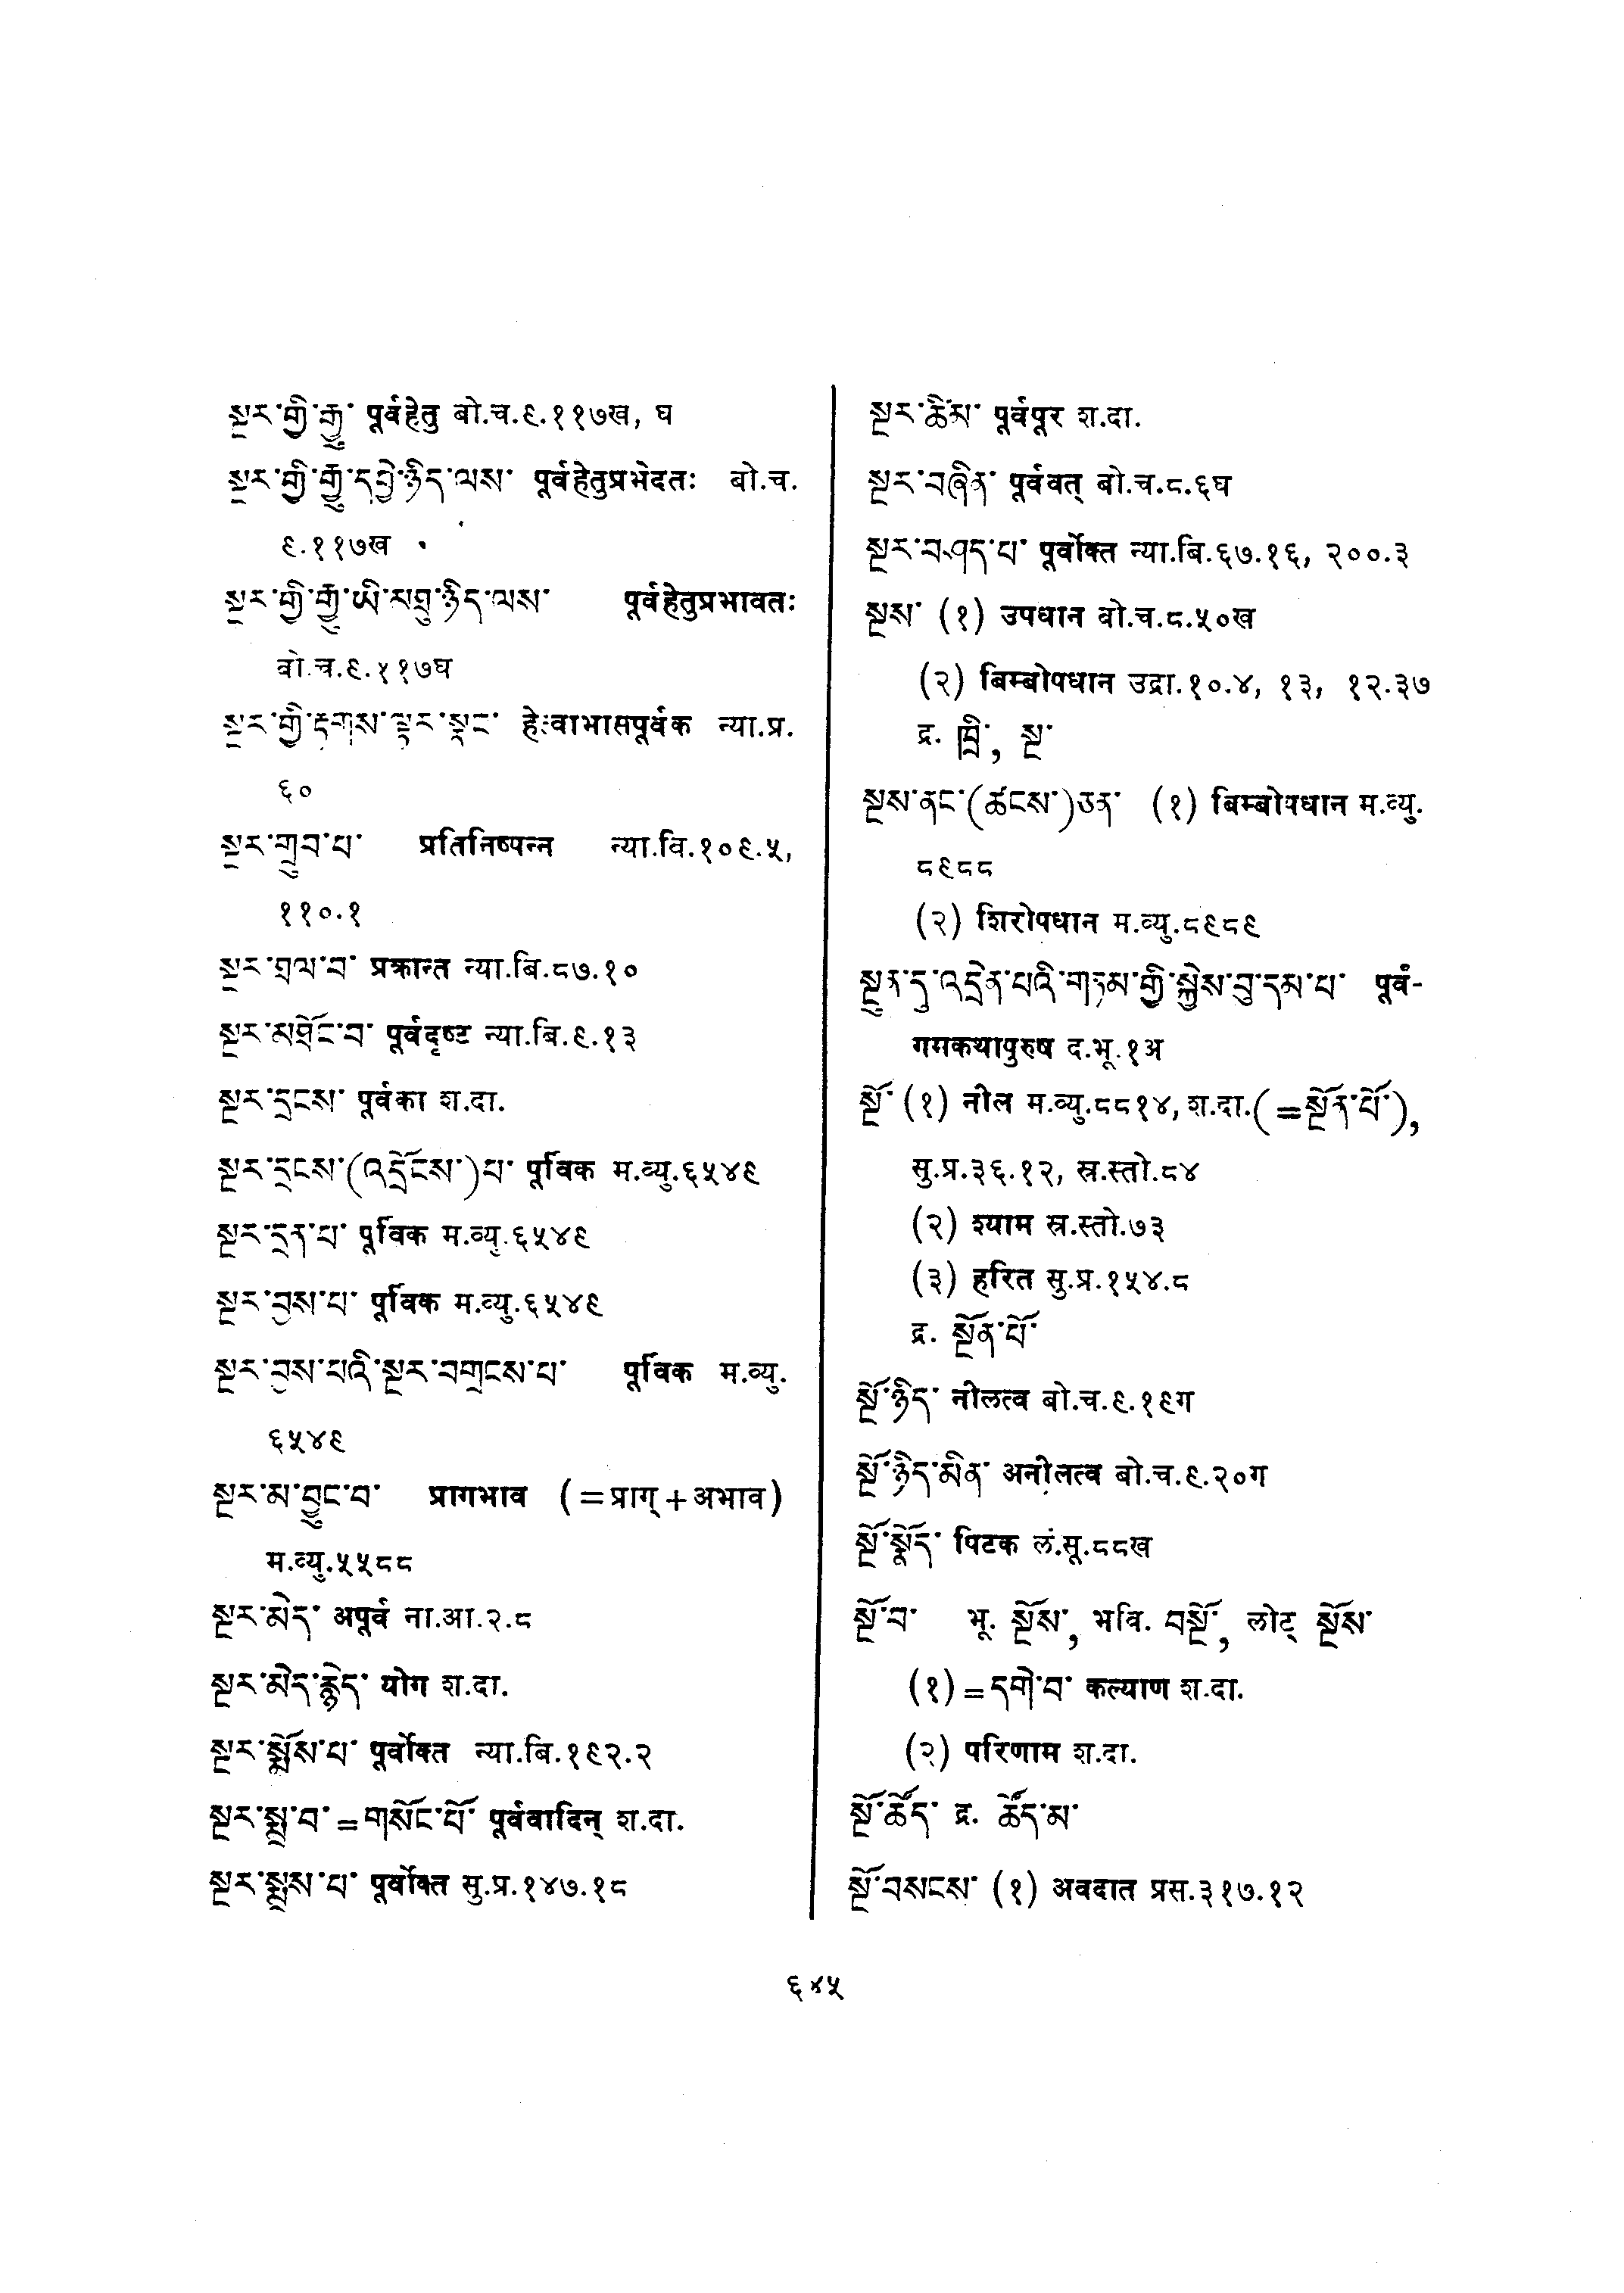 སྔར་གྱི་རྒྱུ་ पूर्वहेतु बो.च.९.११७ख, घ
སྔར་གྱི་རྒྱུ་དབྱེ་ཉིད་ལས་ पूर्वहेतुप्रभेदतः बो.च.
९.११७ख
སྔར་གྱི་རྒྱུ་ཡི་མཐུ་ཉིད་ལས་ पूर्वहेतुप्रभावतः
बो.च.९.११७घ
སྔར་གྱི་རྟགས་ལྟར་སྣང་ हेत्वाभासपूर्वक न्या.प्र.
६०
སྔར་གྲུབ་པ་ प्रतिनिष्पन्न न्या.बि.१०९.५,
११०.१
སྔར་བྲལ་བ་ प्रक्रान्त न्या.बि.८७.१०
སྔར་མཐོང་བ་ पूर्वदृष्ट न्या.बि.९.१३
སྔར་དྲངས་ पूर्वका श.दा.
སྔར་དྲངས་(འདྲོངས་)པ་ पूर्विक म.व्यु.६५४९
སྔར་དྲན་པ་ पूर्विक म.व्यु.६५४९
སྔར་བྱས་པ་ पूर्विक म.व्यु.६५४९
སྔར་བྱས་པའི་སྔར་བགྲངས་པ་ पूर्विक म.व्यु.
६५४९
སྔར་མ་བྱུང་བ་ प्रागभाव (=प्राग्+अभाव)
म.व्यु.५५८८
སྔར་མེད་ अपूर्व ना.आ.२.८
སྔར་མེད་རྙེད་ योग श.दा.
སྔར་སྨོས་པ་ पूर्वोक्त न्या.बि.१९२.२
སྔར་སྨྲ་བ་=གསོང་པོ་ पूर्ववादिन् श.दा.
སྔར་སྨྲས་པ་ पूर्वोक्त सु.प्र.१४७.१८
སྔར་ཆིམ་ पूर्वपूर श.दा.
སྔར་བཞིན་ पूर्ववत् बो.च.८.६घ
སྔར་བཤད་པ་ पूर्वोक्त न्या.बि.६७.१६, २००.३
སྔས་ (१) उपधान बो.च.८.५०ख
(२) बिम्बोपधान उद्रा.१०.४, १३, १२.३७
द्र. ཁྲི་, སྔ་
སྔས་ནང་(ཚངས་)ཅན་ (१) बिम्बोपधान म.व्यु.
८९८८
(२) शिरोपधान म.व्यु.८९८९
སྔུན་དུ་འདྲེན་པའི་གཏམ་གྱི་སྐྱེས་བུ་དམ་པ་ पूर्वं-
गमकथापुरुष द.भू.१अ
སྔོ་ (१) नील म.व्यु.८८१४, श.दा.(=སྔོན་པོ་),
सु.प्र.३६.१२, स्र.स्तो.८४
(२) श्याम स्र.स्तो.७३
(३) हरित सु.प्र.१५४.८
द्र. སྔོན་པོ་
སྔོ་ཉིད་ नीलत्व बो.च.९.१९ग
སྔོ་ཉིད་མིན་ अनीलत्व बो.च.९.२०ग
སྔོ་སྣོད་ पिटक लं.सू.८८ख
སྔོ་བ་ भू. སྔོས་, भवि. བསྔོ་, लोट् སྔོས་
(१)=དགེ་བ་ कल्याण श.दा.
(२) परिणाम श.दा.
སྔོ་ཚོད་ द्र. ཚོད་མ་
སྔོ་བསངས་ (१) अवदात प्रस.३१७.१२
६४५